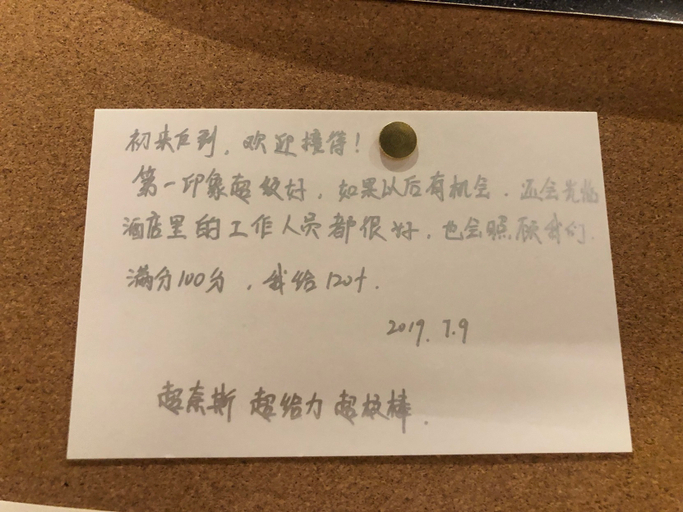 初来乍到，欢迎接待！
第一印象超级好，如果以后有机会．还会光临
酒店里的工作人员都很好，也会照顾我们．
满分100分，我给120分．
2019.7.9
超奈斯 超给力 超级棒．